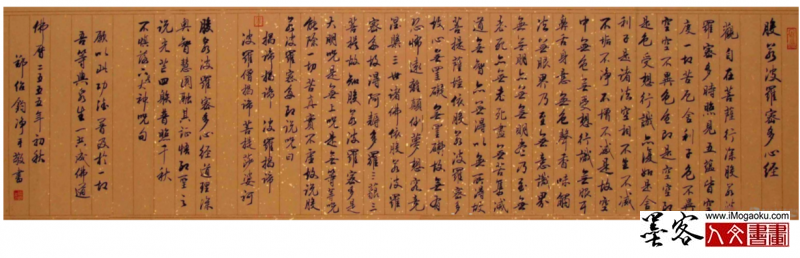 般若波羅蜜多心經
觀自在菩薩行深般若波
羅蜜多時照見五蘊皆空
度一切苦厄舍利子色不異
空空不異色色即是空空即
是色受想行識亦復如是舍
利子是諸法空相不生不滅
不垢不淨不增不減是故空
中無色無受想行識無眼耳
鼻舌身意無色聲香味觸
法無眼界乃至無意識界
無無明亦無無明盡乃至無
老死亦無老死盡無苦集滅
道無智亦無得以無所得故
菩提薩埵依般若波羅蜜多
故心無罣礙無罣礙故無有
恐怖遠離顛倒夢想究竟
涅槃三世諸佛依般若波羅
蜜多故得阿耨多羅三藐三
菩提故知般若波羅蜜多是
大明咒是無上咒是無等等咒
能除一切苦真實不虛故說般
若波羅蜜多咒即說咒曰
揭諦揭諦 波羅揭諦
波羅僧揭諦菩提薩婆訶
般若波羅蜜多心經道理深
奧智慧圓融
光芒四 普照千秋
神咒曰
願以此功德普及於一切
吾等與眾生一共成佛道
佛曆二五五五年初秋
伯鈞淨手敬書
墨客
www.iMogaoku.com
人文書畫